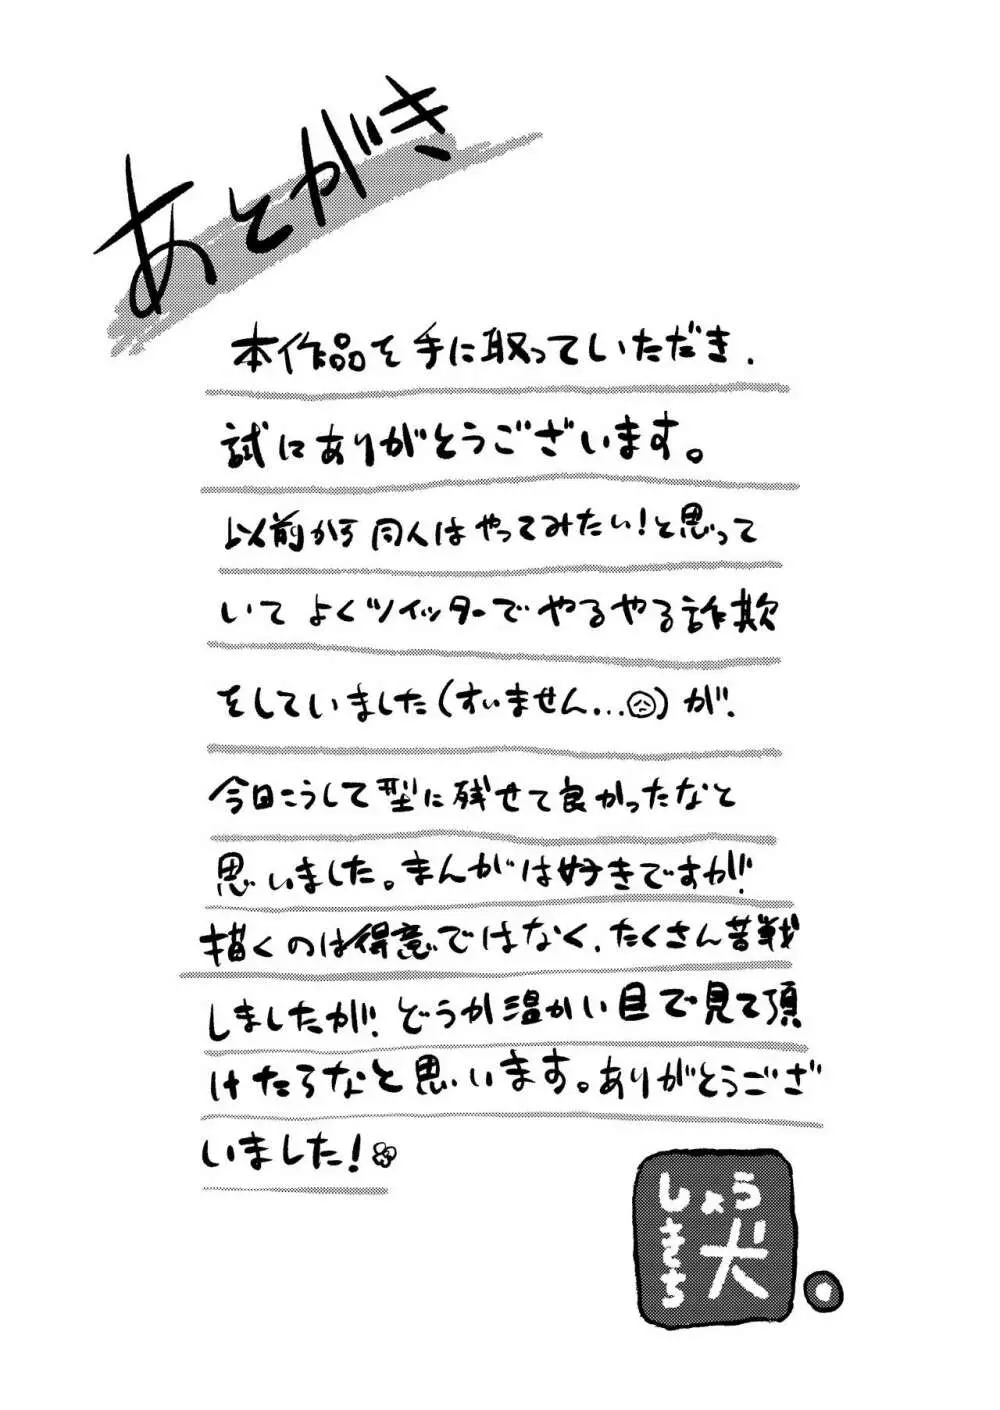 あとがき
本作品を手に取っていただき.
試にありがとうございます。
以前から同人はやってみたい!と思って
いて よくツイッターでやるやる詐欺
をしていました(すいません...)が、
今日こうして型に残せて良かったなと
思いました。まんがは好きですが、
描くのは得意ではなく、たくさん苦戦
しましたが、どうか温かい目で見て頂
けたらなと思います。ありがとうござ
いました!
しょう犬
きち